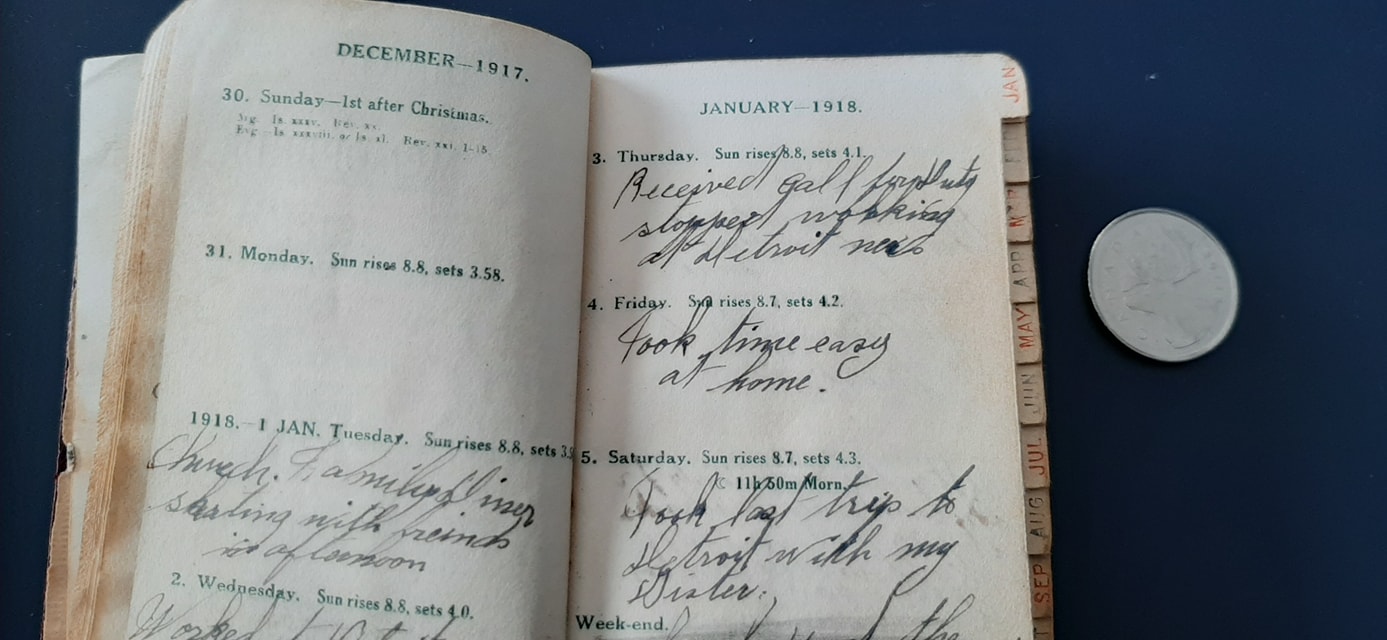 DECEMBER—1917.
30. Sunday—1st after Christmas.
Mg. Is. xxxv. Rev. xx.
Evg.—Is. xxxviii. or Is. xl. Rev. xxi. 1-15
31. Monday. Sun rises 8.8, sets 3.58.
1918.—1 JAN. Tuesday. Sun rises 8.8, sets 3.5
Church. Family Diner
skating with freinds
in afternoon
2. Wednesday. Sun rises 8.8, sets 4.0.
Worked
JANUARY—1918.
3. Thursday. Sun rises 8.8, sets 4.1.
Received call for duty
stopped working
at Detroit news
4. Friday. Sun rises 8.7, sets 4.2.
Took time easy
at home.
5. Saturday. Sun rises 8.7, sets 4.3.
☾ 11h 50m Morn.
Took last trip to
Detroit with my
Sister.
Week-end.
the
JAN
APR
MAY
JUN
JUL
AUG
SEP